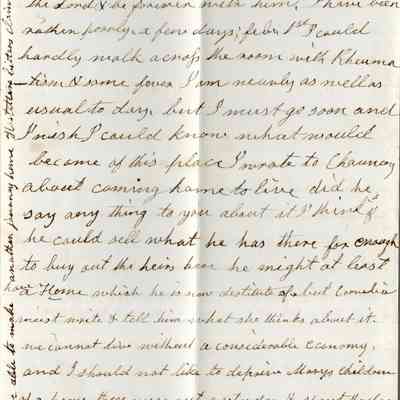 the Lord & be forever with him. I have been
rather poorly a few days; feb, 1st I could
hardly walk across the room with Rheuma
tism & some fever I am nearly as well as
usual to day, but I must go soon and
I wish I could know what would
become of this place I wrote to Chauncy
about coming home to live did he
say any thing to you about it I think if
he could sell what he has there for enough
to buy out the heirs here he might at least
have a Home which he is now destitute of, but Cornelia
must write & tell him what she thinks about it.
we cannot live without a considerable economy,
and I should not like to deprive Marys Children
able to make another journey home